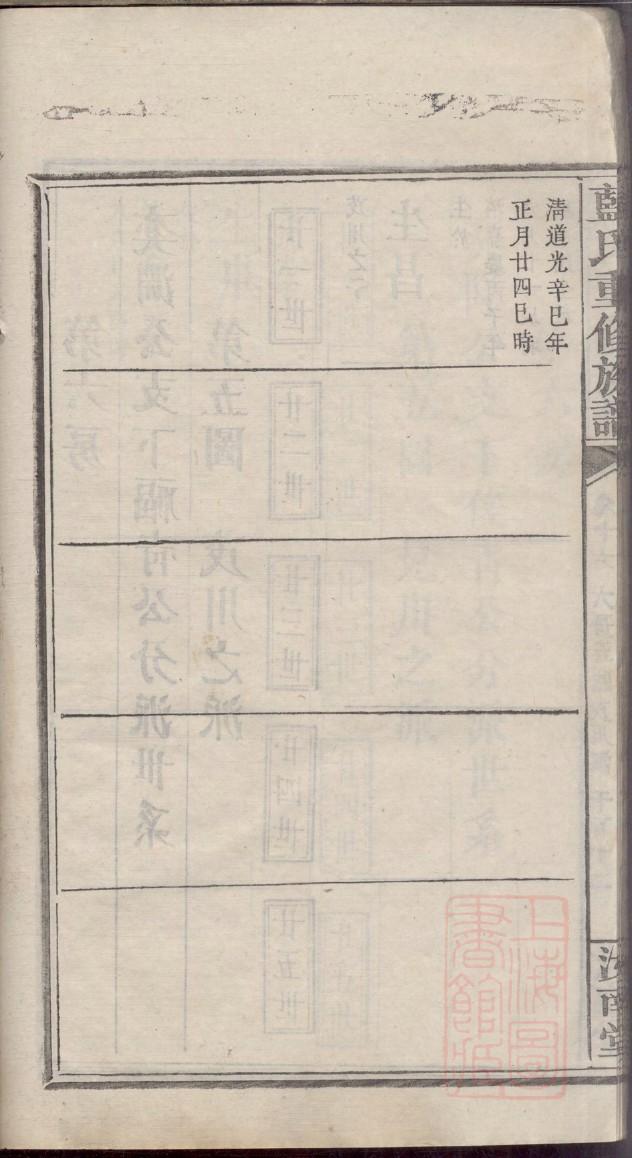 藍氏重修族譜
汝南堂
清道光辛巳年
正月廿四巳時
上海圖
書館藏